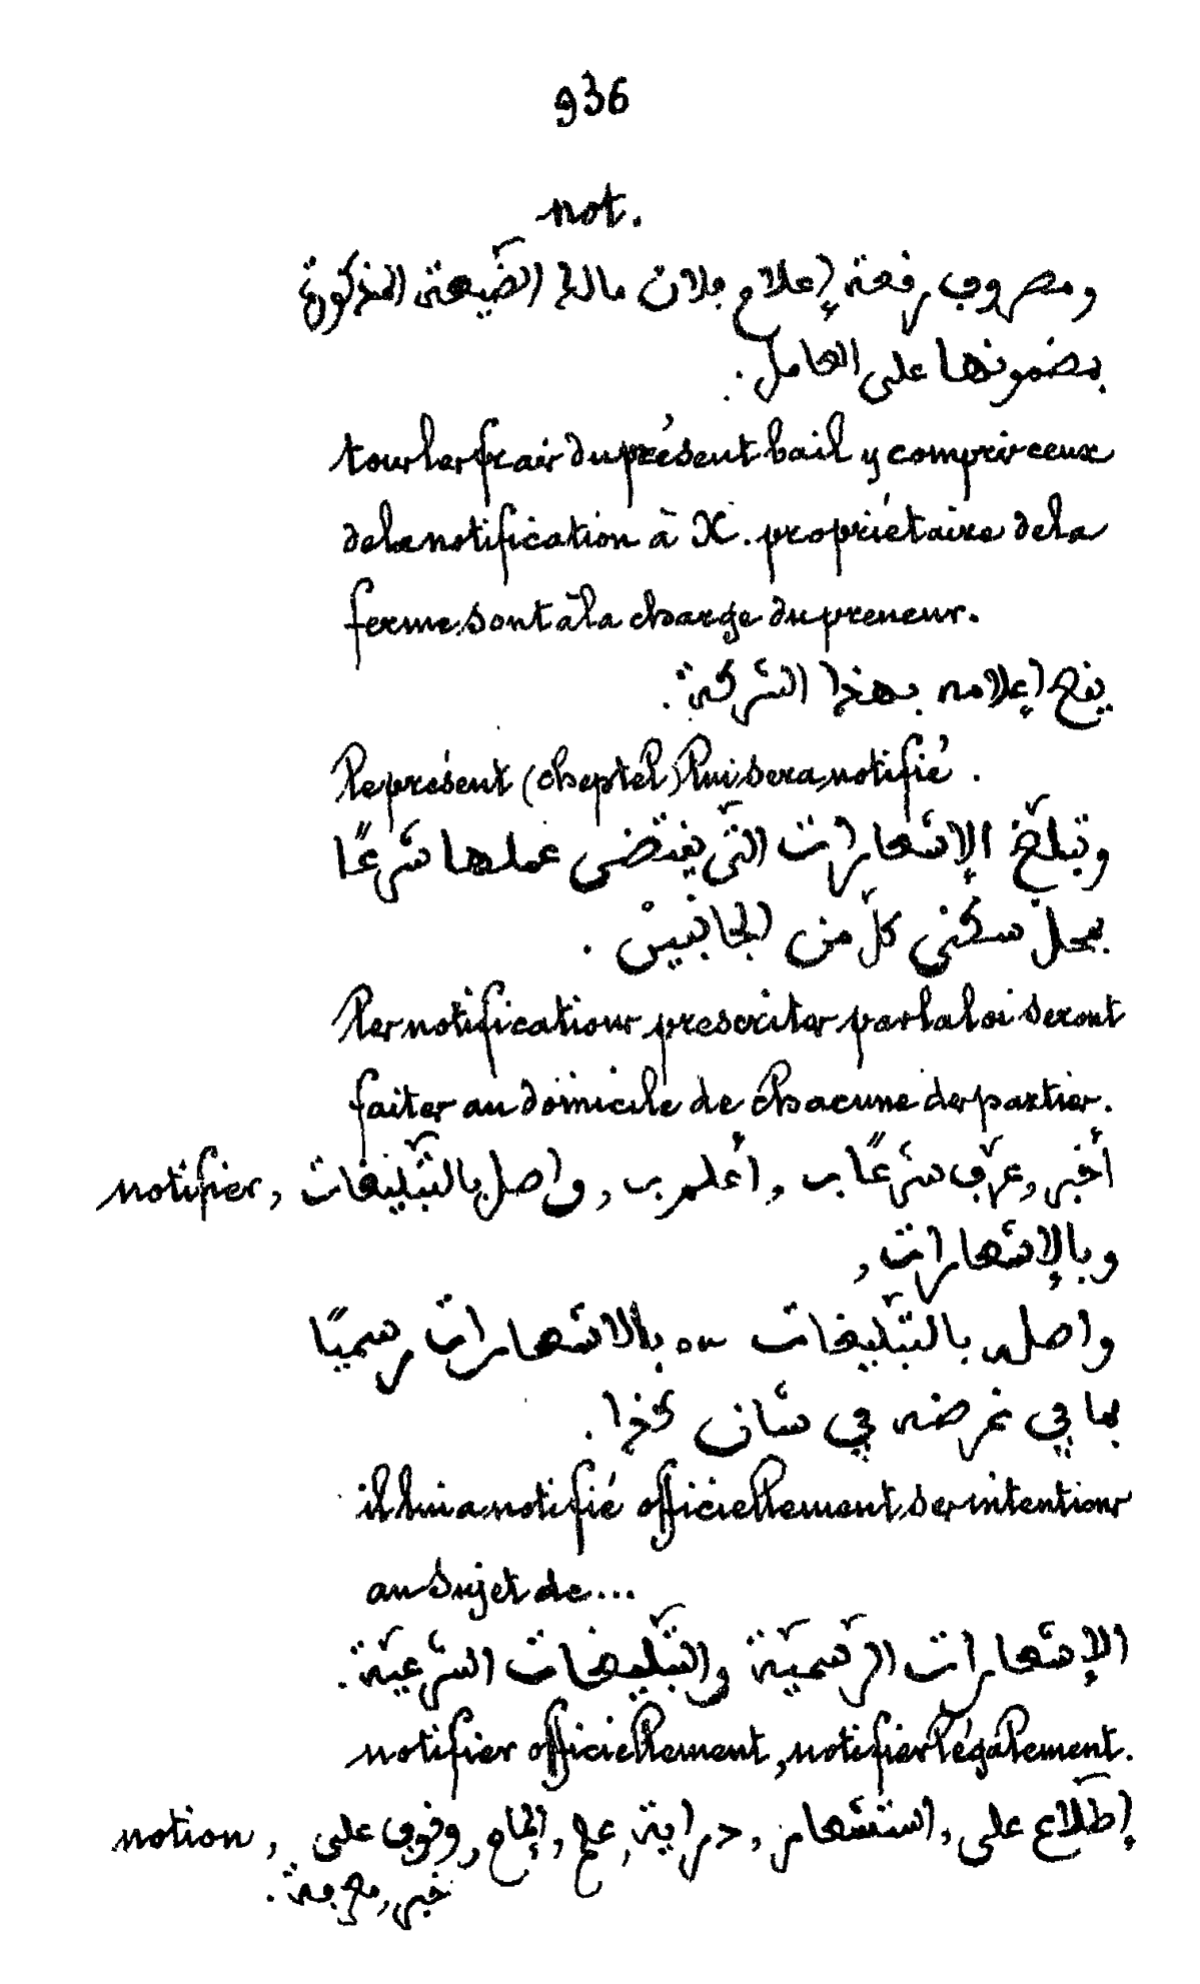 936
not.
ومصروف رفعة إعلام فلان مالك الضّيعة المذكورة
بمضمونها على العامل.
tous les frais du présent bail y compris ceux
de la notification à X. propriétaire de la
ferme sont à la charge du preneur.
يقع إعلامه بهذا الشركة.
le présent (cheptel) lui sera notifié.
وتبلّغ الإشعارات التّي يقتضى عملها شرعًا
بمحلّ سكنى كلّ من الجانبين.
les notifications prescrites par la loi seront
faites au domicile de chacune des parties.
notifier, أخبر, عرّف شرعًا ب, أعلم ب, واصل بالتّبليغات
وبالإشعارات,
واصله بالتّبليغات ou بالاشعارات رسميّا
بما في غرضه في شان كذا.
il lui a notifié officiellement ses intentions
au sujet de...
الإشعارات الرّسميّة والتّبليغات الشّرعيّة.
notifier officiellement, notifier légalement.
notion, إطّلاع على, استشعار, دراية, علم, إلمام, وقوف على
خبر, معرفة.